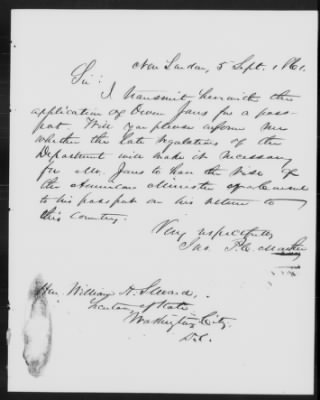 New London, 5 Sept. 1861.
Sir:
I transmit herewith the
application of Owen for a pass-
port. Will you please inform me
whether the late regulations of the
Department will make it necessary
for Mr. to have the visé of
the American Minister or a Consul
to his passport on his return to
this Country.
Very respectfully
Hon. William H. Seward,
Secretary of State
Washington City.
D.C.